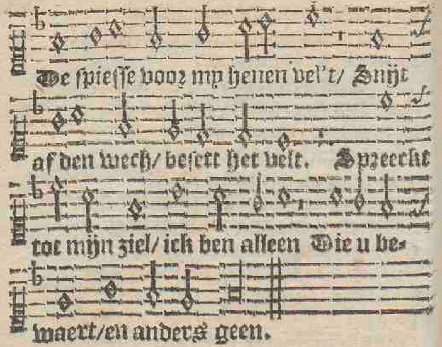 De spiesse voor my henen vel't/ Snijt
af den wech/ besett het velt. Spreeckt
tot mijn ziel/ ick ben alleen Die u be-
waert/ en anders geen.